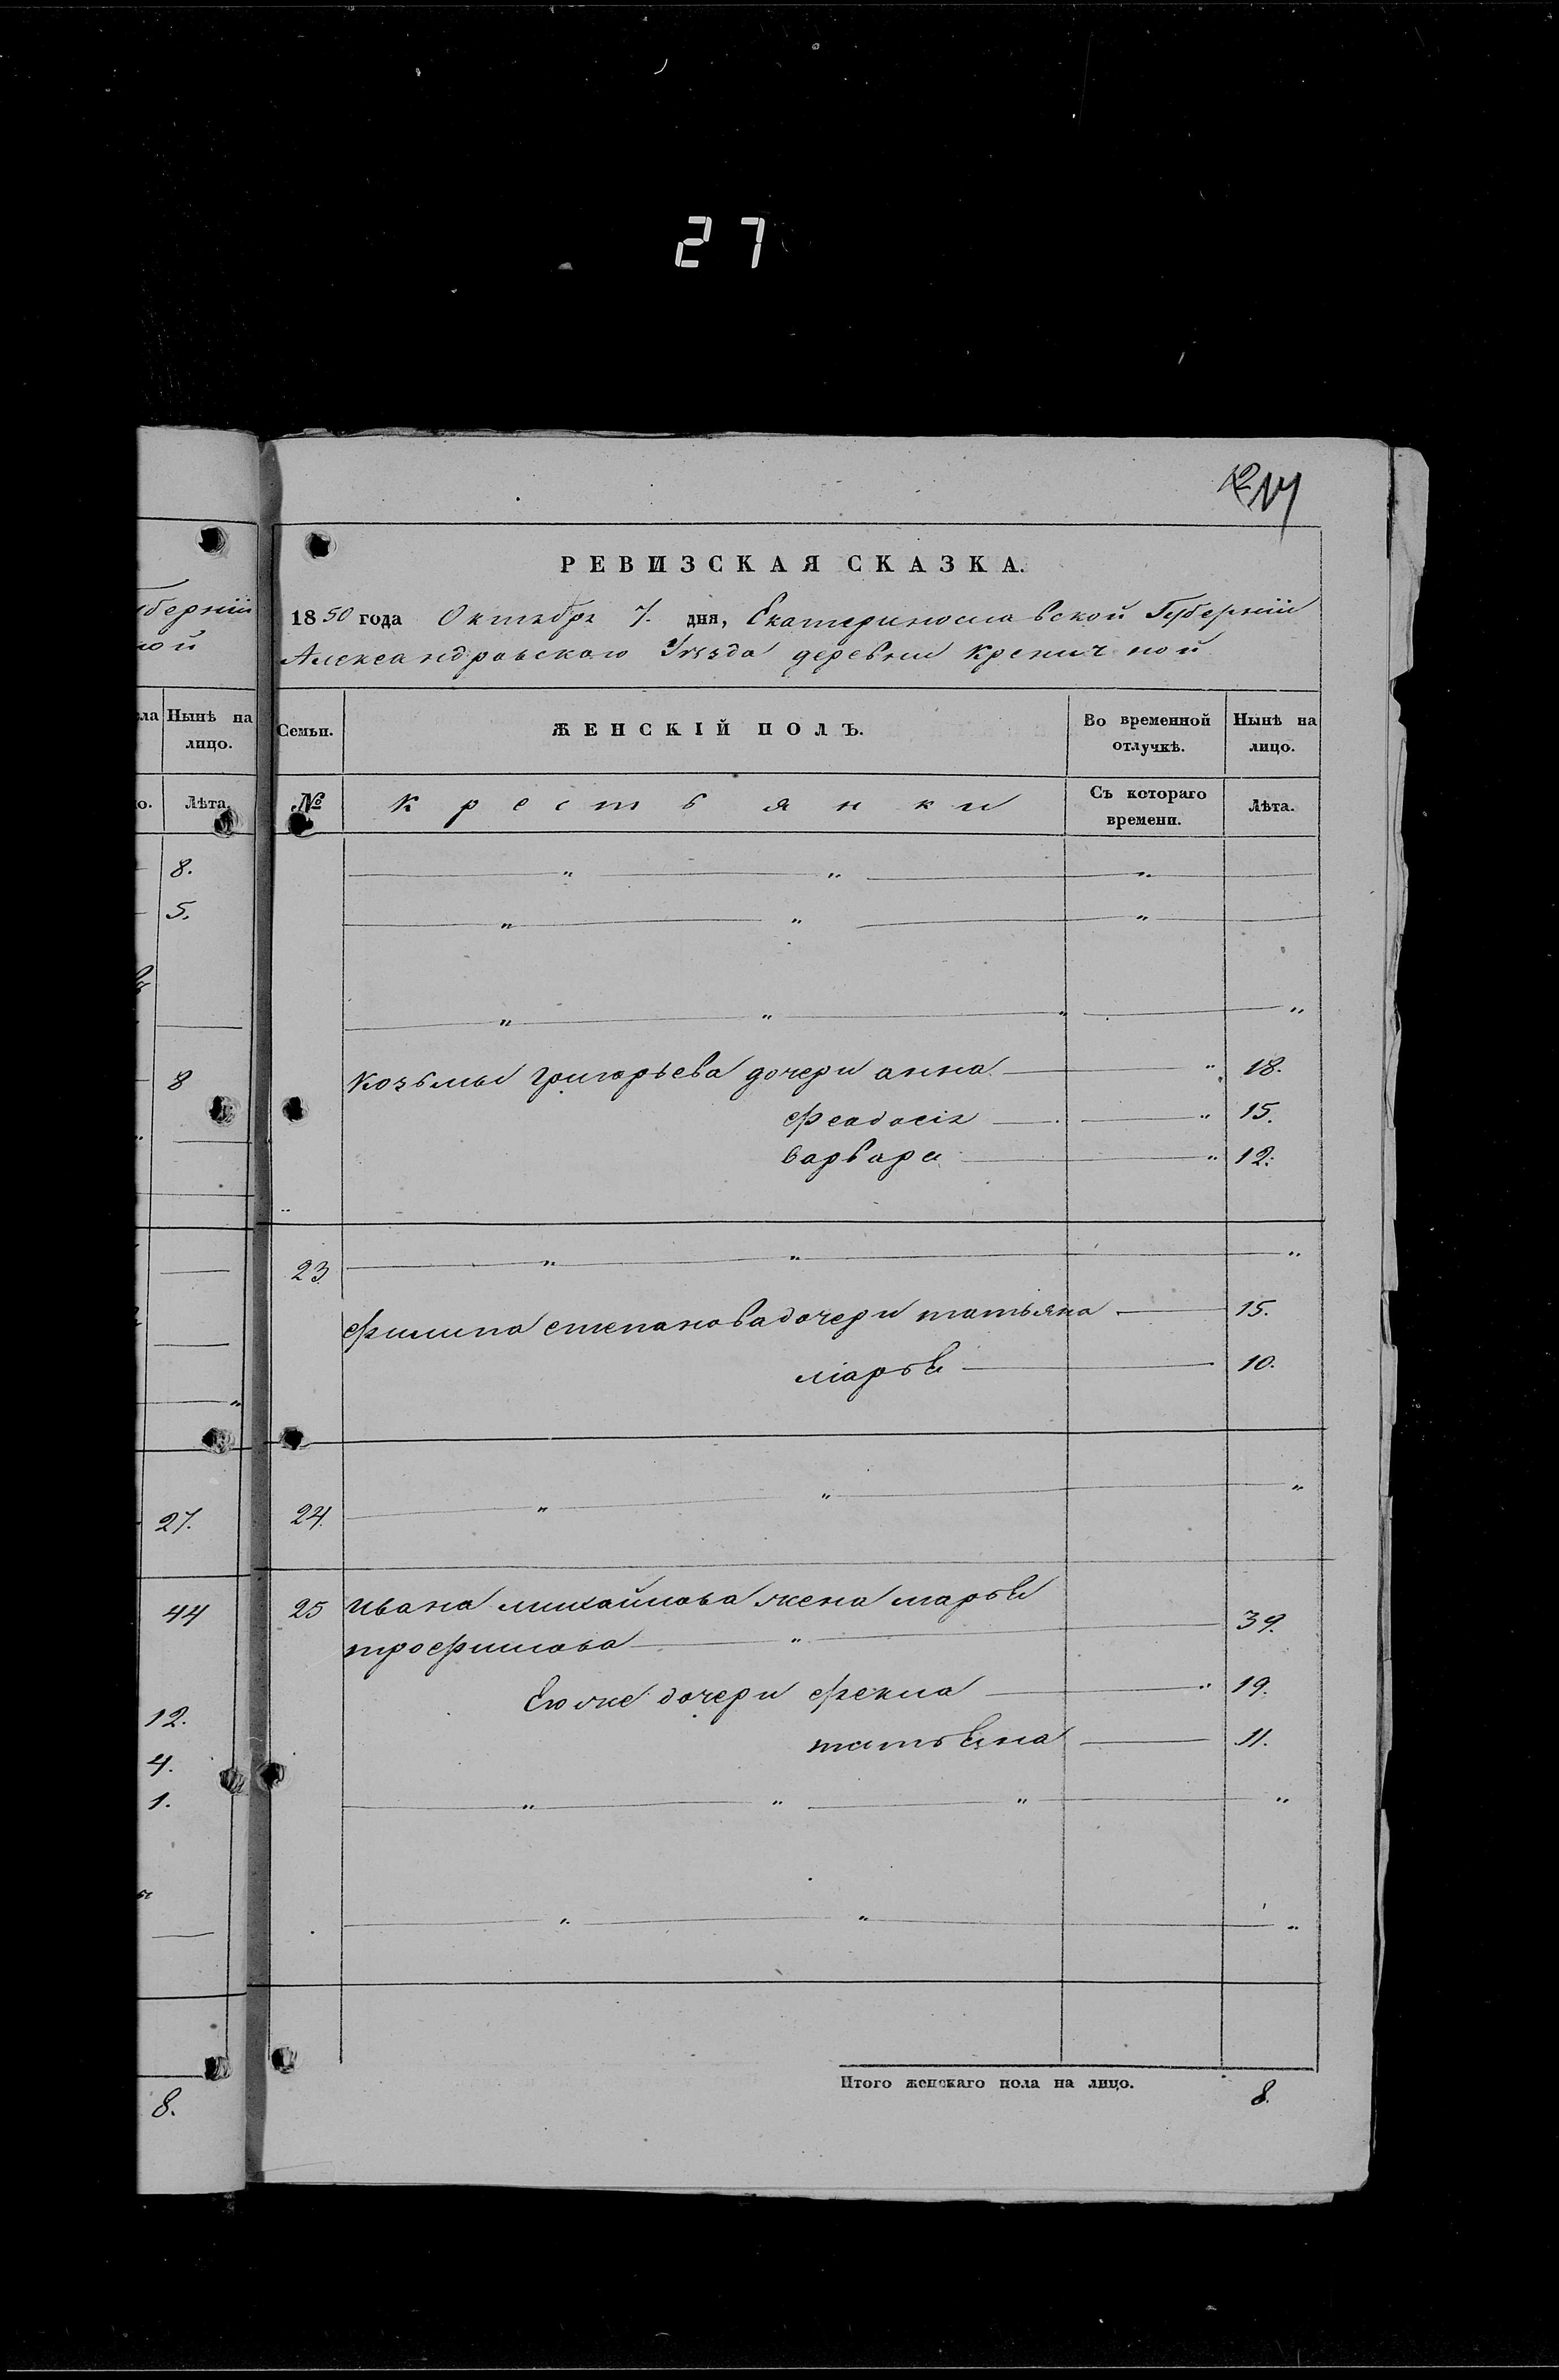 27
РЕВИЗСКАЯ СКАЗКА.
1850 года Октября 7. дня, Екатеринославской Губерніи
Александровскаго Уѣзда деревни Креничной
Семьи. ЖЕНСКІЙ ПОЛЪ. Во временной отлучкѣ. Нынѣ на лицо.
№ Крестьянки Съ котораго времени. Лѣта.
Козьмы Григорьева дочери анна " 18.
Феодосія " 15.
варвара " 12.
23 " " "
Филипа степанова дочери татьяна 15.
марья 10.
24. " " "
25 Ивана михайлова жена марья
трофимова " 39.
Его же дочери Фекла " 19.
татьяна 11.
" " " "
" " "
Итого женскаго пола на лицо. 8.
берніи
ой
ла Нынѣ на лицо.
о. Лѣта.
8.
5.
8
27.
44
12.
4.
1.
8.